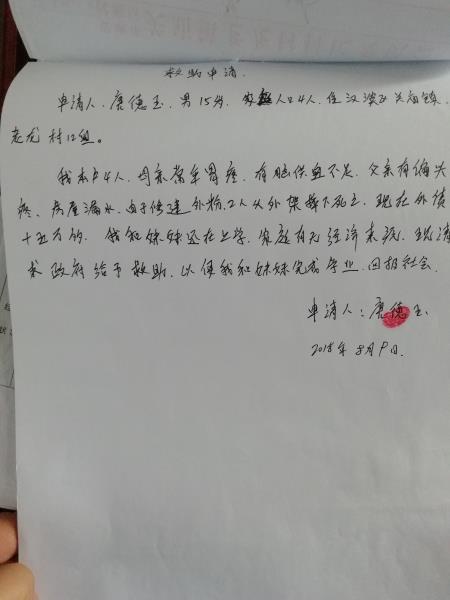 救助申请
申请人:唐德玉,男15岁,家庭人口4人,住汉滨区关庙镇
老龙村12组。
我本户4人,母亲常年胃疼,有脑供血不足,父亲有偏头
疼、房屋漏水,由于修建外粉,2人从外架掉下死亡,现在外债
十五万多,我和妹妹还在上学,家庭有无经济来源,现请
求政府给予救助,以便我和妹妹完成学业,回报社会。
申请人:唐德玉
2018年8月9日.